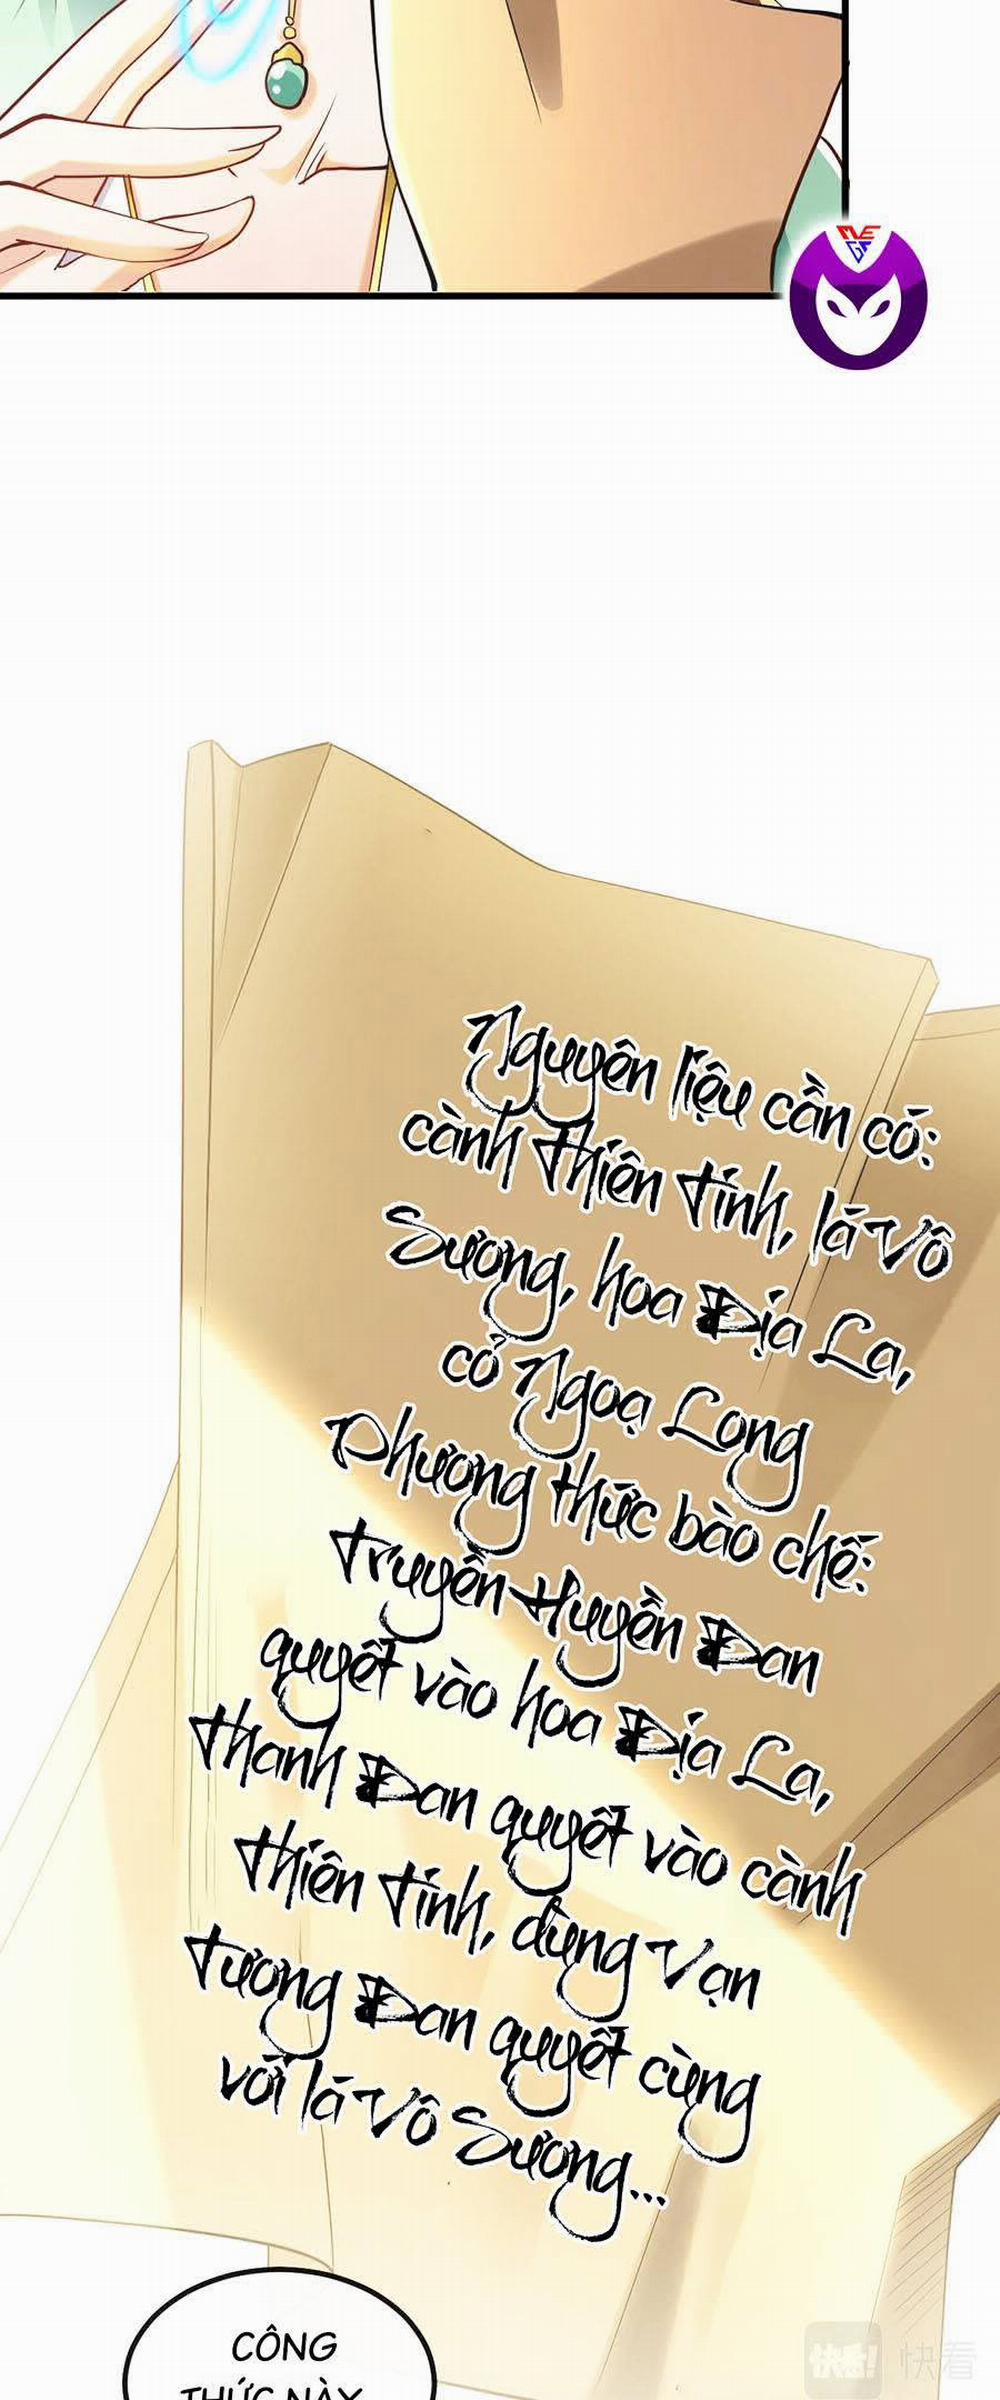 MEGS
Nguyên liệu cần có:
cành Thiên Tinh, lá Vô
Sương, hoa Địa La,
cỏ Ngoạ Long
Phương thức bào chế:
Truyền Huyền Đan
quyết vào hoa Địa La,
Thanh Đan quyết vào cành
Thiên Tinh, dùng Vạn
Tượng Đan quyết cùng
với lá Vô Sương...
CÔNG
THỨC NÀY
快看! 快看